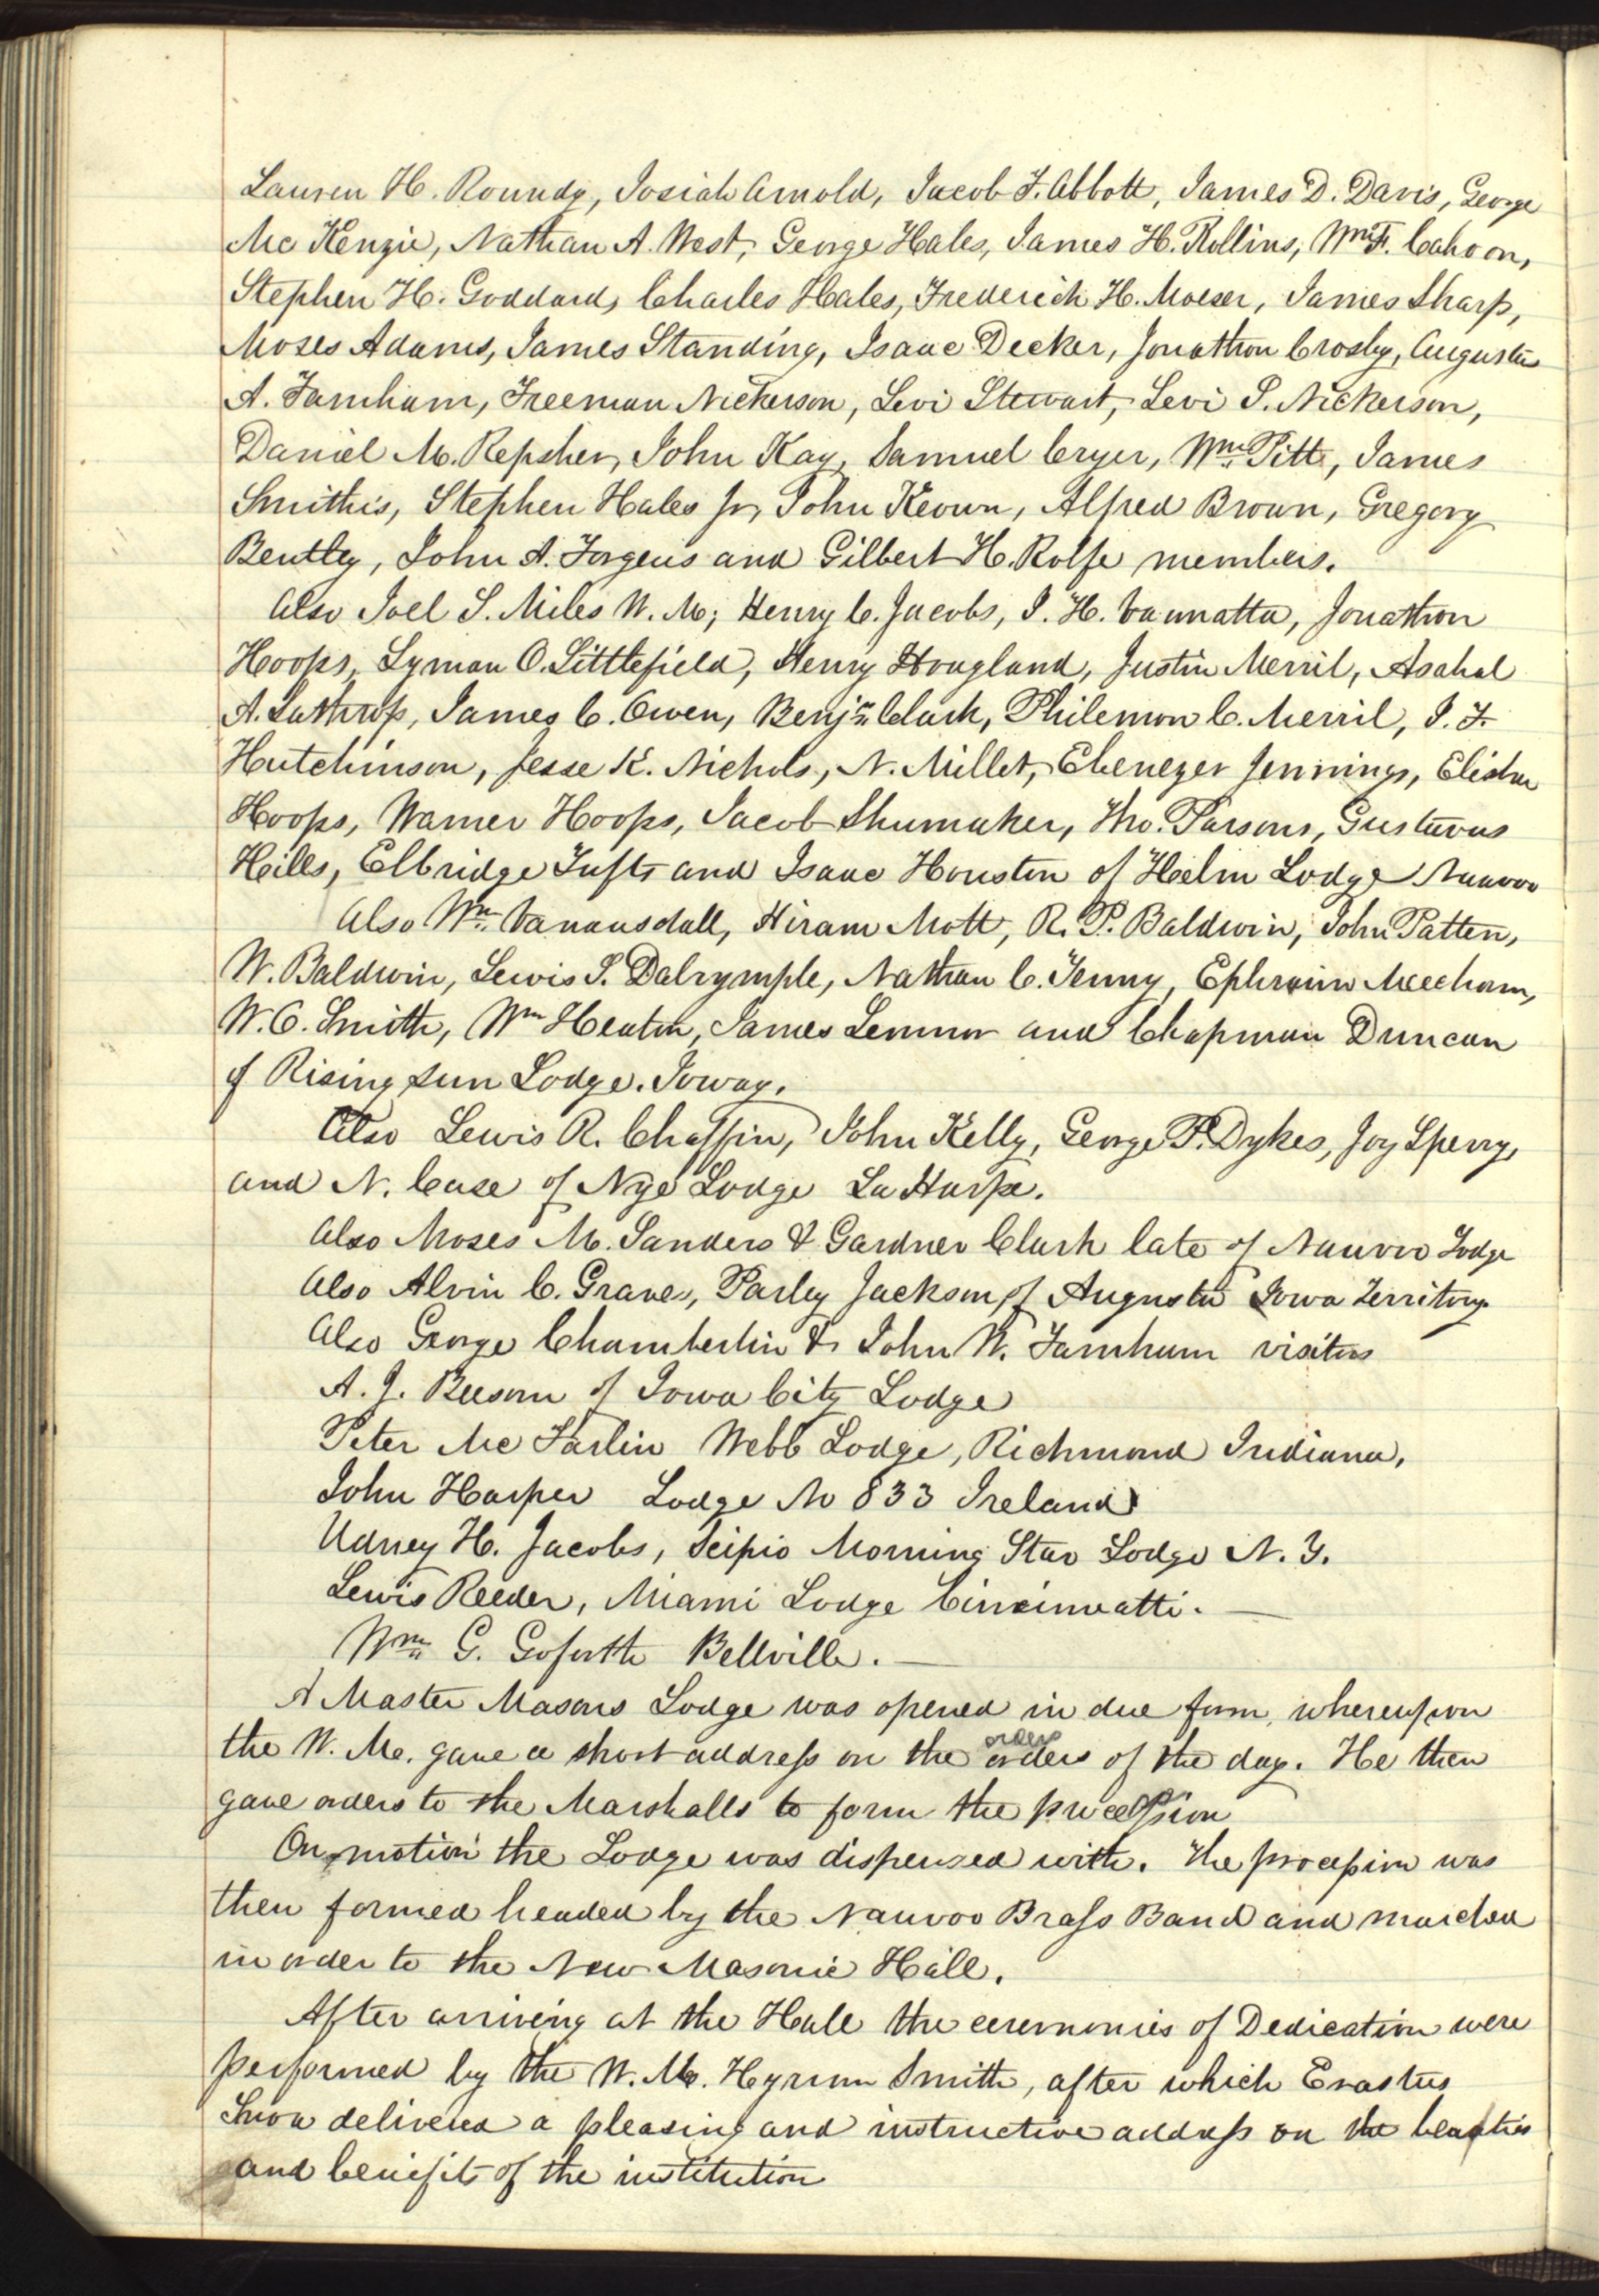 Lauren H. Roundy, Josiah Arnold, Jacob F. Abbott, James D. Davis, George
Mc Kenzie, Nathan A. West, George Hales, James H. Rollins, Wm F. Cahoon,
Stephen H. Goddard, Charles Hales, Frederich H. Moeser, James Sharp,
Moses Adams, James Standing, Isaac Decker, Jonathon Crosby, Augustus
A. Farnham, Freeman Nickerson, Levi Stewart, Levi S. Nickerson,
Daniel M. Repsher, John Kay, Samuel Cryer, Wm Pitt, James
Smithis, Stephen Hales Jr, John Keown, Alfred Brown, Gregory
Bentley, John A. Forgeus and Gilbert H. Rolfe members.
Also Joel S. Miles W. M; Henry C. Jacobs, I. H. Vannatta, Jonathon
Hoops, Lyman O. Littlefield, Henry Hougland, Justin Merril, Asahal
A. Lathrop, James C. Owen, Benjn Clark, Philemon C. Merril, J. F.
Hutchinson, Jesse K. Nichols, N. Millet, Ebenezer Jennings, Elisha
Hoops, Warner Hoops, Jacob Shumaker, Tho. Parsons, Gustavus
Hills, Elbridge Tufts and Isaac Houston of Helm Lodge Nauvoo
Also Wm Vanausdall, Hiram Mott, R. P. Baldwin, John Patten,
W. Baldwin, Lewis S. Dalrymple, Nathan C. Tenny, Ephraim Meecham,
W. C. Smith, Wm Heaton, James Lemmon and Chapman Duncan
of Rising Sun Lodge. Ioway.
Also Lewis R. Chaffin, John Kelly, George P. Dykes, Joy Sperry,
and N. Case of Nye Lodge La Harpe.
Also Moses M. Sanders & Gardner Clark late of Nauvoo Lodge
Also Alvin C. Graves, Parley Jackson of Augusta Iowa Territory
Also George Chamberlin & John W. Farnham visitors
A. J. Beeson of Iowa City Lodge
Peter Mc Farlin Webb Lodge, Richmond Indiana,
John Harper Lodge No 833 Ireland
Udney H. Jacobs, Scipio Morning Star Lodge N. Y.
Lewis Reeder, Miami Lodge Cincinnatti. —
Wm G. Goforth Bellville. —
A Master Masons Lodge was opened in due form, whereupon
the W. M. gave a short address on the orders order of the day. He then
gave orders to the Marshalls to form the procession
On motion the Lodge was dispensed with. The procession was
then formed headed by the Nauvoo Brass Band and marched
in order to the New Masonic Hall.
After arriving at the Hall the ceremonies of Dedication were
performed by the W. M. Hyrum Smith, after which Erastus
Snow delivered a pleasing and instructive address on the beauties
and benefits of the institution